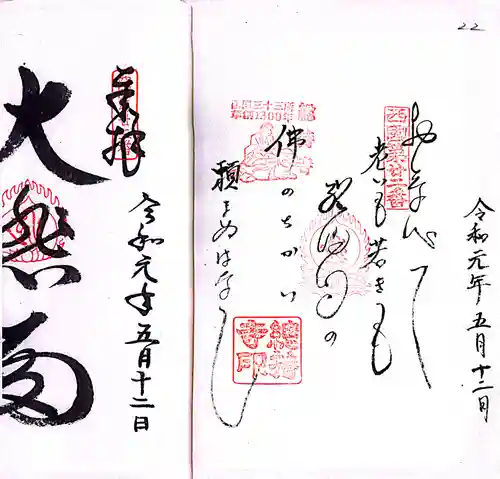 22
令和元年五月十二日
西國第廿二番
老いも若きも
佛のちかい
頼まぬは
西国三十三所
草創1300年
總持寺
總持寺印
奉拝
令和元年五月十二日
大悲